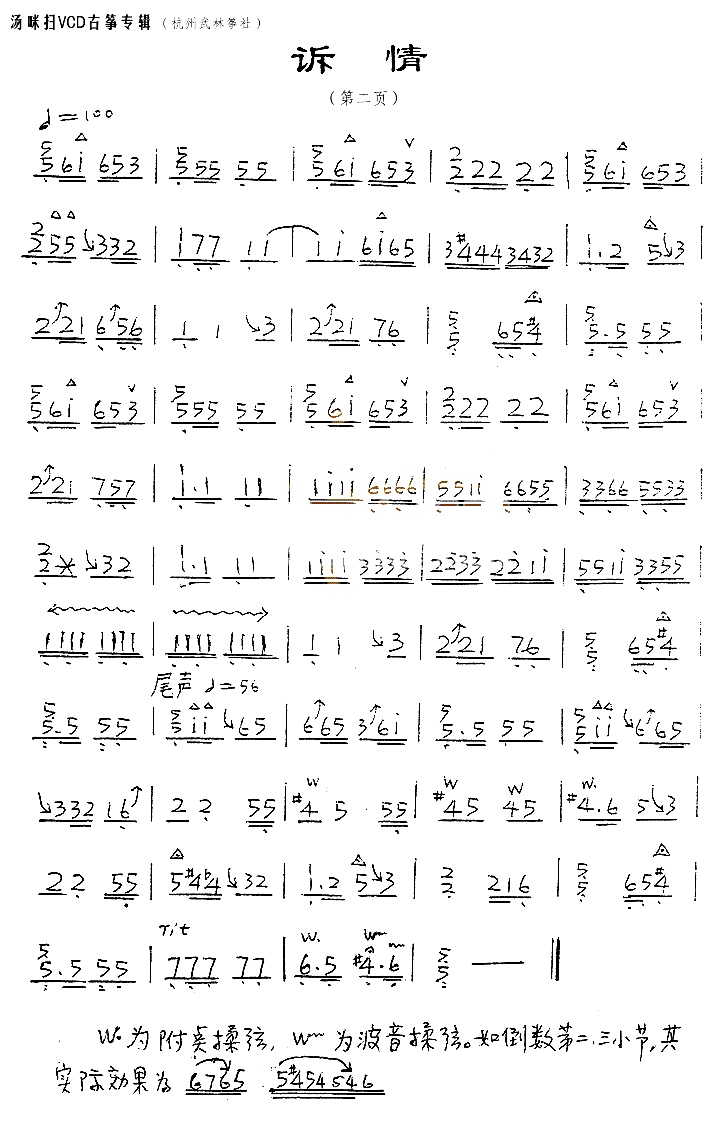 汤咪扫VCD古筝专辑（杭州武林筝社）
诉 情
（第二页）
♩=100
5/5 6i 653 | 5/5 55 55 | 5/5 6i 653 | 2/2 22 22 | 5/5 6i 653
2/2 55 ↘332 | 177 11 | 11 6i65 | 3#444 3432 | 1.2 5↘3
2↗21 6↗56 | 1 1 ↘3 | 2↗21 76 | 5/5 65#4 | 5/5.5 55
5/5 6i 653 | 5/5 55 55 | 5/5 6i 653 | 2/2 22 22 | 5/5 6i 653
2↗21 757 | 1.1 11 | 1111 6666 | 5511 6655 | 3366 5533
2/2 ↘32 | 1.1 11 | 1111 3333 | 2233 2211 | 5511 3355
1111 1111 | 1111 1111 | 1 1 ↘3 | 2↗21 76 | 5/5 65#4
尾声 ♩=56
5/5.5 55 | 5/5 ii ↘65 | 6↗65 3↗6i | 5/5.5 55 | 5/5 ii ↘6↗65
↘332 16↗ | 2 2 55 | #4 5 55 | #45 45 | #4.6 5↘3
22 55 | 5#4♭4↘32 | 1.2 5↘3 | 2/2 216 | 5/5 65#4
rit
5/5.5 55 | 777 77 | 6.5 #4.6 | 5/5 —
W. 为附点揉弦，W~ 为波音揉弦。如倒数第二.三小节，其
实际效果为 6765 5#454546